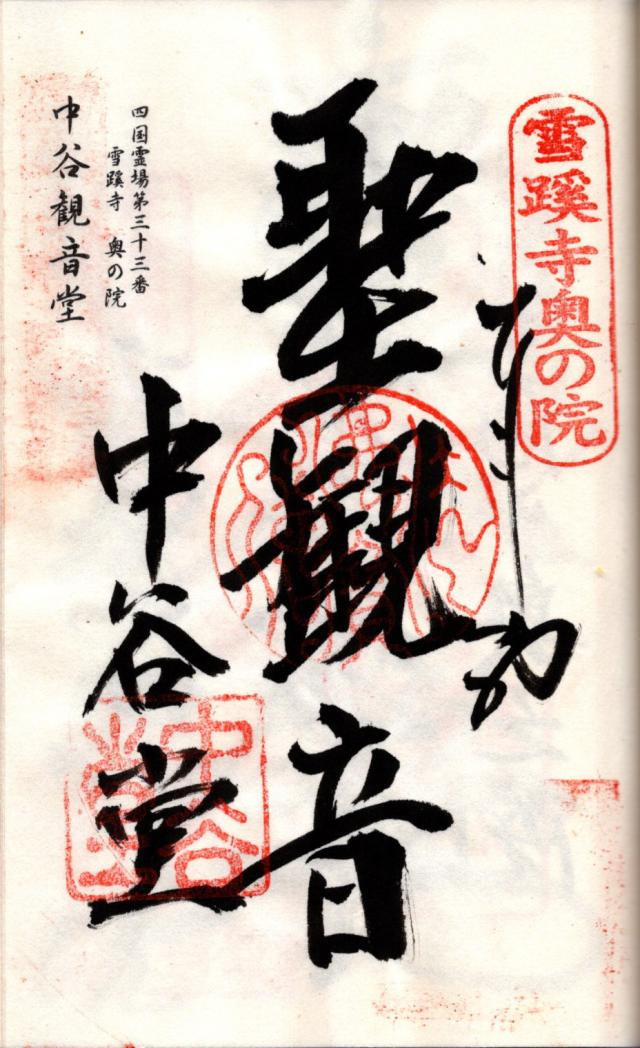 雪蹊寺奥の院
奉拝
聖観音
中谷堂
四国霊場第三十三番
雪蹊寺 奥の院
中谷観音堂
中谷
堂印